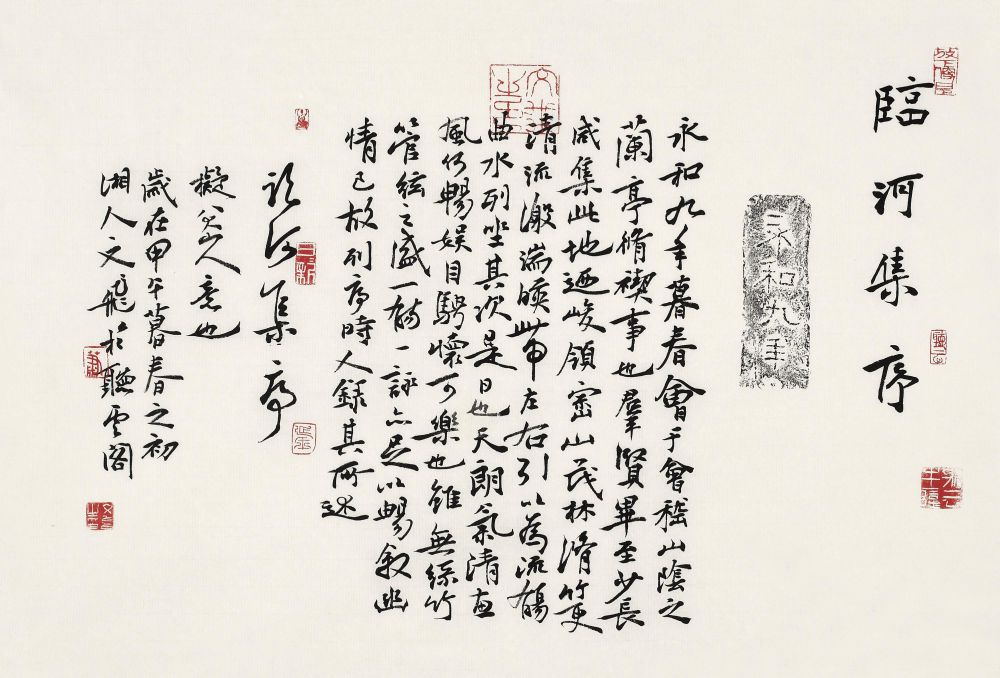 臨河集序
永和九年
永和九年暮春會于會稽山陰之
蘭亭脩禊事也羣賢畢至少長
咸集此地迺峻領崇山茂林脩竹更
清流激湍暎帶左右引以為流觴
曲水列坐其次是日也天朗氣清惠
風和暢娛目騁懷可樂也雖無絲竹
管絃之盛一觴一詠亦足以暢敘幽
情已故列序時人錄其所述
臨河集序
擬八大山人意也
歲在甲午暮春之初
湘人文飛於聽雲閣